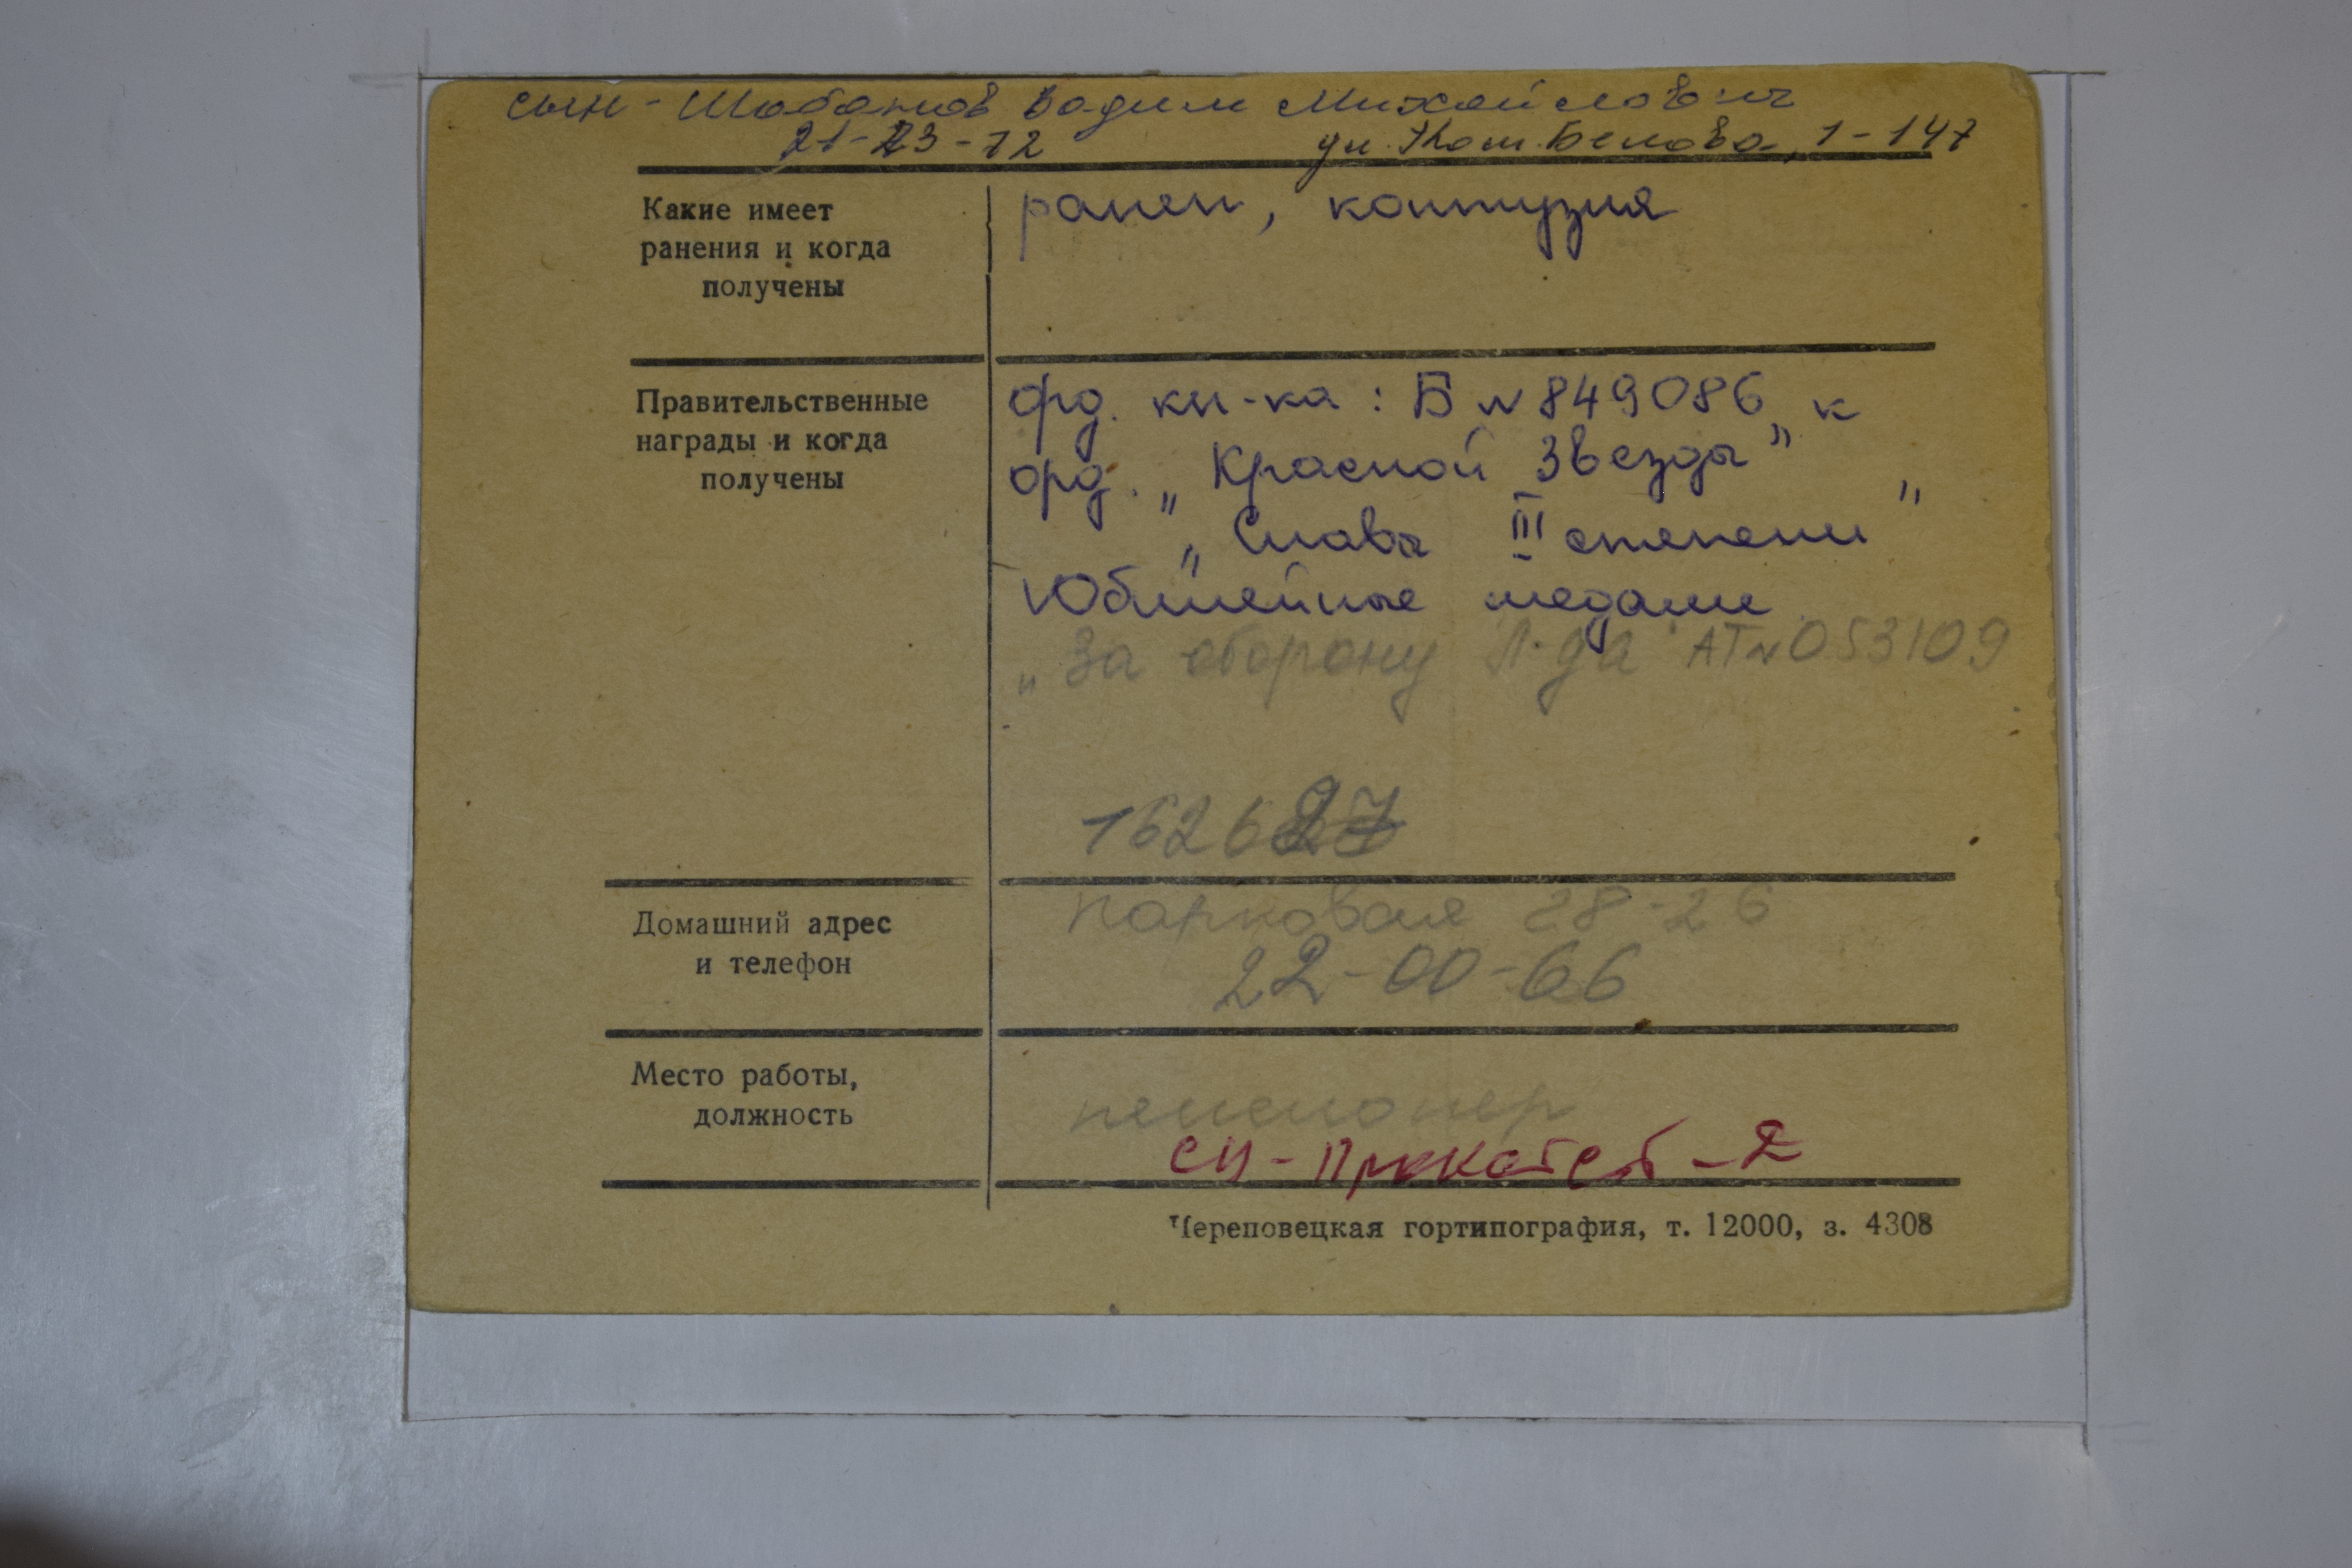 сын - Шабанов Вадим Михайлович
21-23-12 ул. Наст. Белова, 1-147
Какие имеет ранен, контузия
ранения и когда
получены
Правительственные орд. кн-ка: Б №849086 к
награды и когда орд. „Красной Звезды"
получены „Слава III степени"
Юбилейные медали
„За оборону Л-да" АТ№053109
162627
Домашний адрес Парковая 28-26
и телефон 22-00-66
Место работы, пенсионер
должность СЦ-Прокатсб-2
Череповецкая гортипография, т. 12000, з. 4308